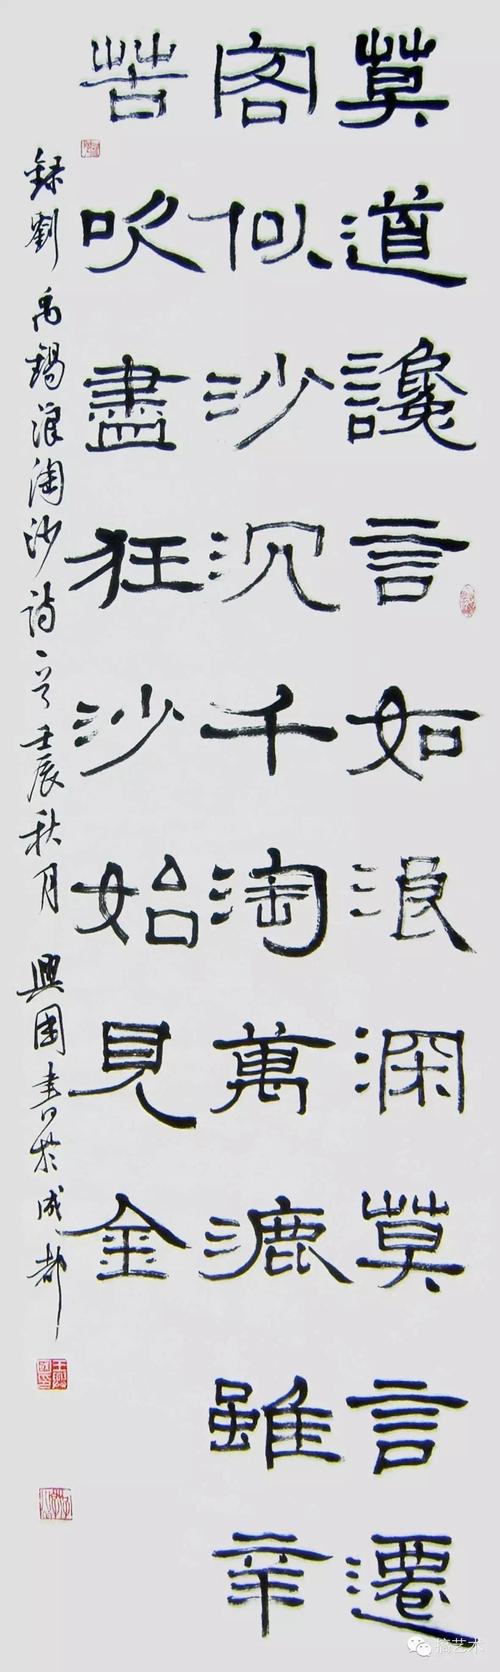 莫道讒言如浪深莫言遷
客似沙沉千淘萬漉雖辛
苦吹盡狂沙始見金
録劉禹錫浪淘沙詩一首壬辰秋月興國書於成都
搞艺术